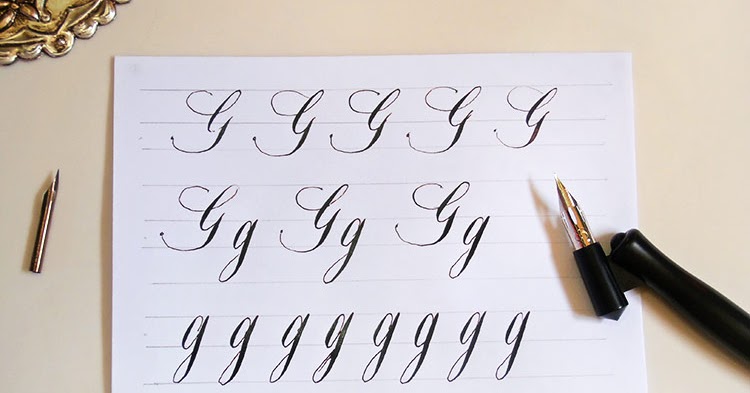 G G G G G
Gg Gg Gg
g g g g g g g g